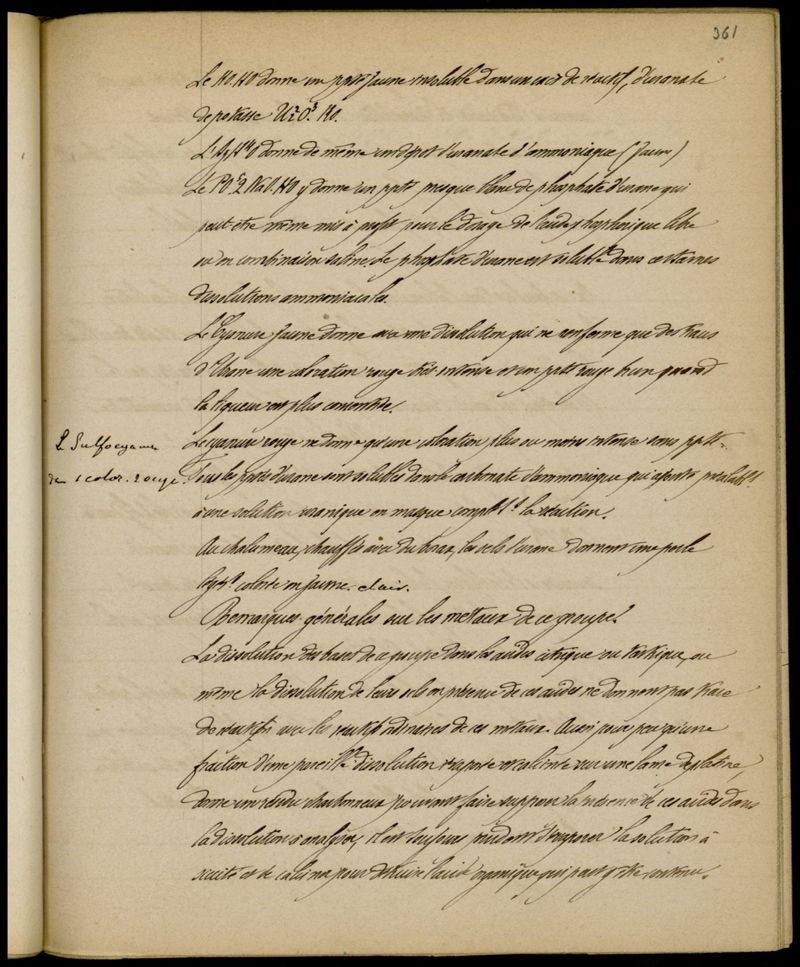 361
Le KO.HO donne un ppté jaune insoluble dans un excès de réactif, d'uranate
de potasse U²O³.KO.
L'AzH⁴O donne de même un dépôt d'uranate d'ammoniaque (jaune)
Le PO⁵.2NaO.HO y donne un ppté presque blanc de phosphate d'urane qui
peut être même mis à profit pour le dosage de l'acide phosphorique libre
ou en combinaison saline. Le phosphate d'urane est soluble dans certaines
dissolutions ammoniacales.
Le Cyanure jaune donne avec une dissolution qui ne renferme que des traces
d'Urane une coloration rouge très intense et un ppté rouge brun quand
la liqueur est plus concentrée.
Le Sulfocyanure
de 1 color. rouge.
Le cyanure rouge ne donne qu'une coloration plus ou moins intense sans ppté.
Tous les pptés d'urane sont solubles dans le carbonate d'ammoniaque qui ajouté préalablt
à une solution uranique en masque complt la réaction.
Au chalumeau, chauffés avec du borax, les sels d'urane donnent une perle
colorée en jaune-clair.
Remarques générales sur les métaux de ce groupe.
La dissolution des bases de ce groupe dans les acides citrique ou tartrique, ou
même la dissolution de leurs sels en présence de ces acides ne donnent pas trace
de réactifs avec les réactifs ordinaires de ces métaux. Aussi pour peu qu'une
fraction d'une pareille dissolution évaporée et calcinée sur une lame de platine,
donne un résidu charbonneux pouvant faire supposer la présence de ces acides dans
la dissolution à analyser, il est toujours prudent d'évaporer la solution à
siccité et de calciner pour détruire l'acide organique qui peut y être contenu.